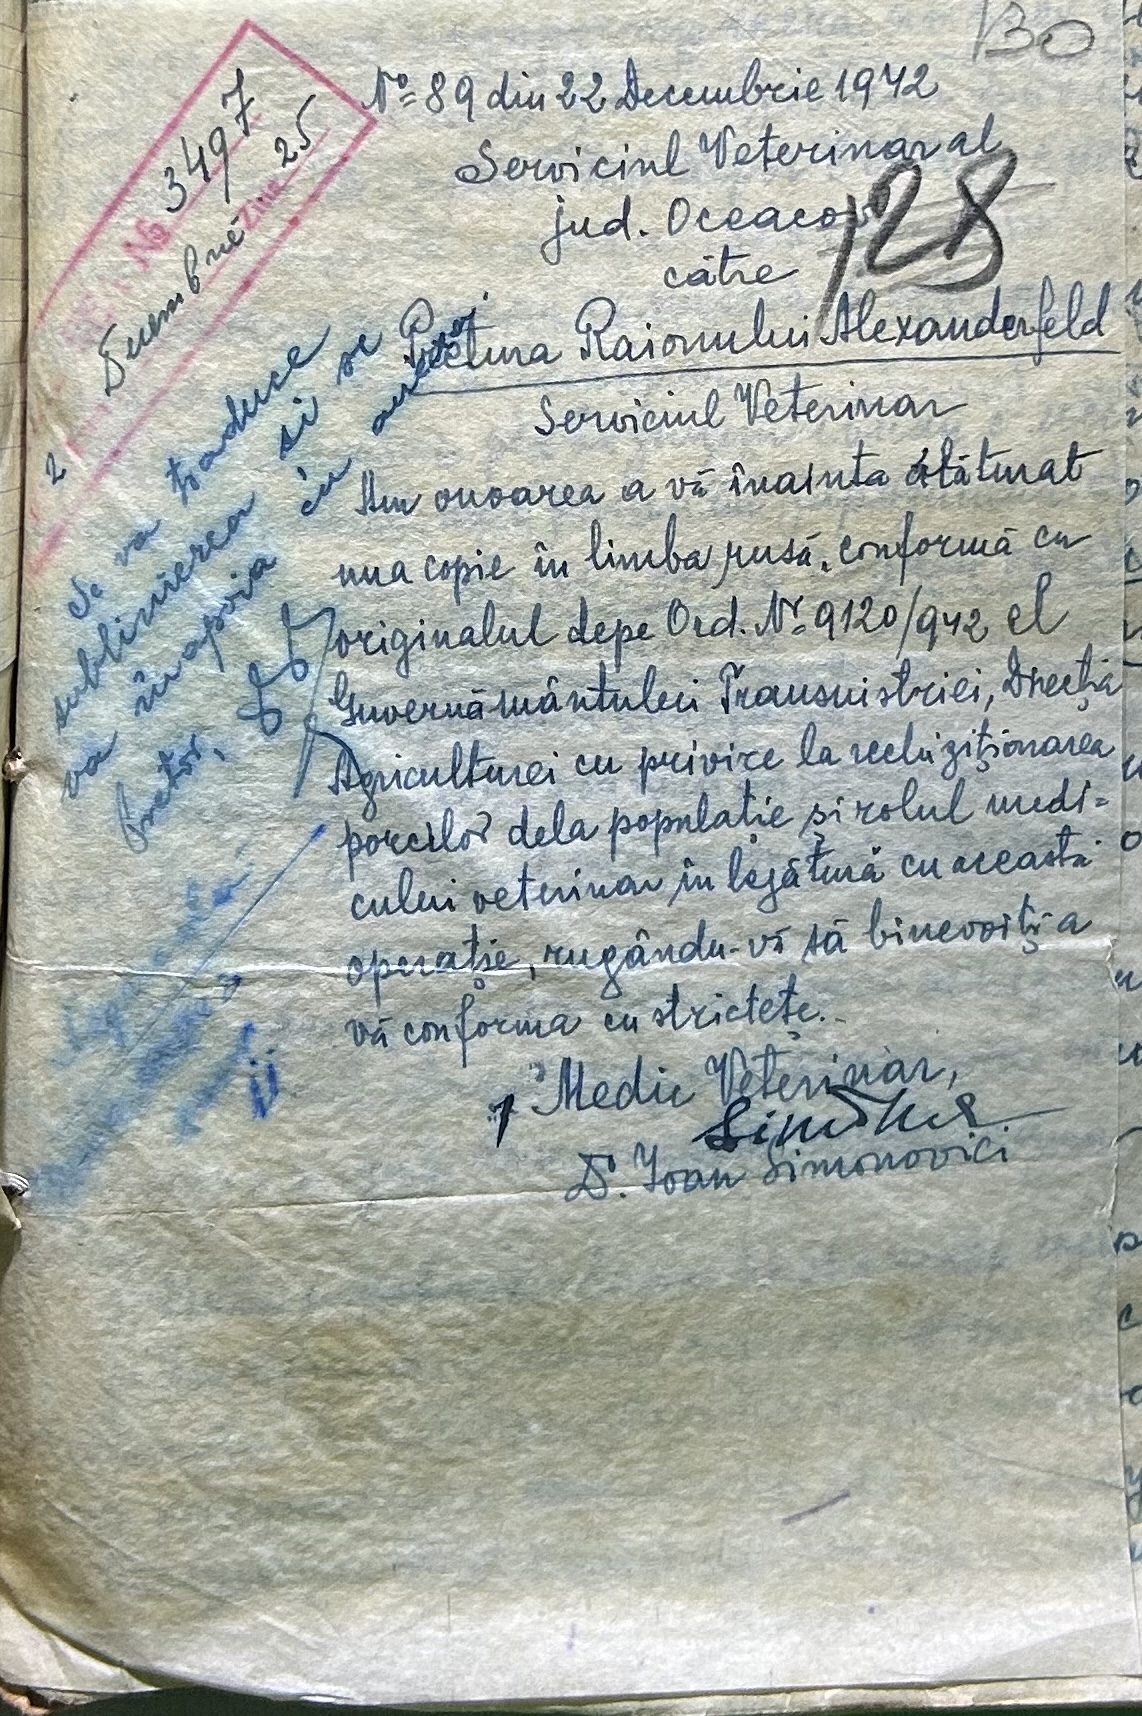 130
№ 89 din 22 Decembrie 1942
Serviciul Veterinar al
jud. Oceacov
128
către
Pretura Raionului Alexanderfeld
Serviciul Veterinar
Am onoarea a vă înainta alăturat
una copie în limba rusă, conformă cu
originalul depe Ord. № 9120/942 al
Guvernământului Transnistriei, Direcția
Agriculturei cu privire la rechiziționarea
porcilor dela populație și rolul medi=
cului veterinar în legătură cu această
operație, rugându-vă să binevoiți a
vă conforma cu strictețe.
Medic Veterinar,
Dr. Ioan Simonovici
№ 3497
Decembrie Ziua 25
2
Se va traduce
sublinierea și se
va înapoia cu
Pretor,